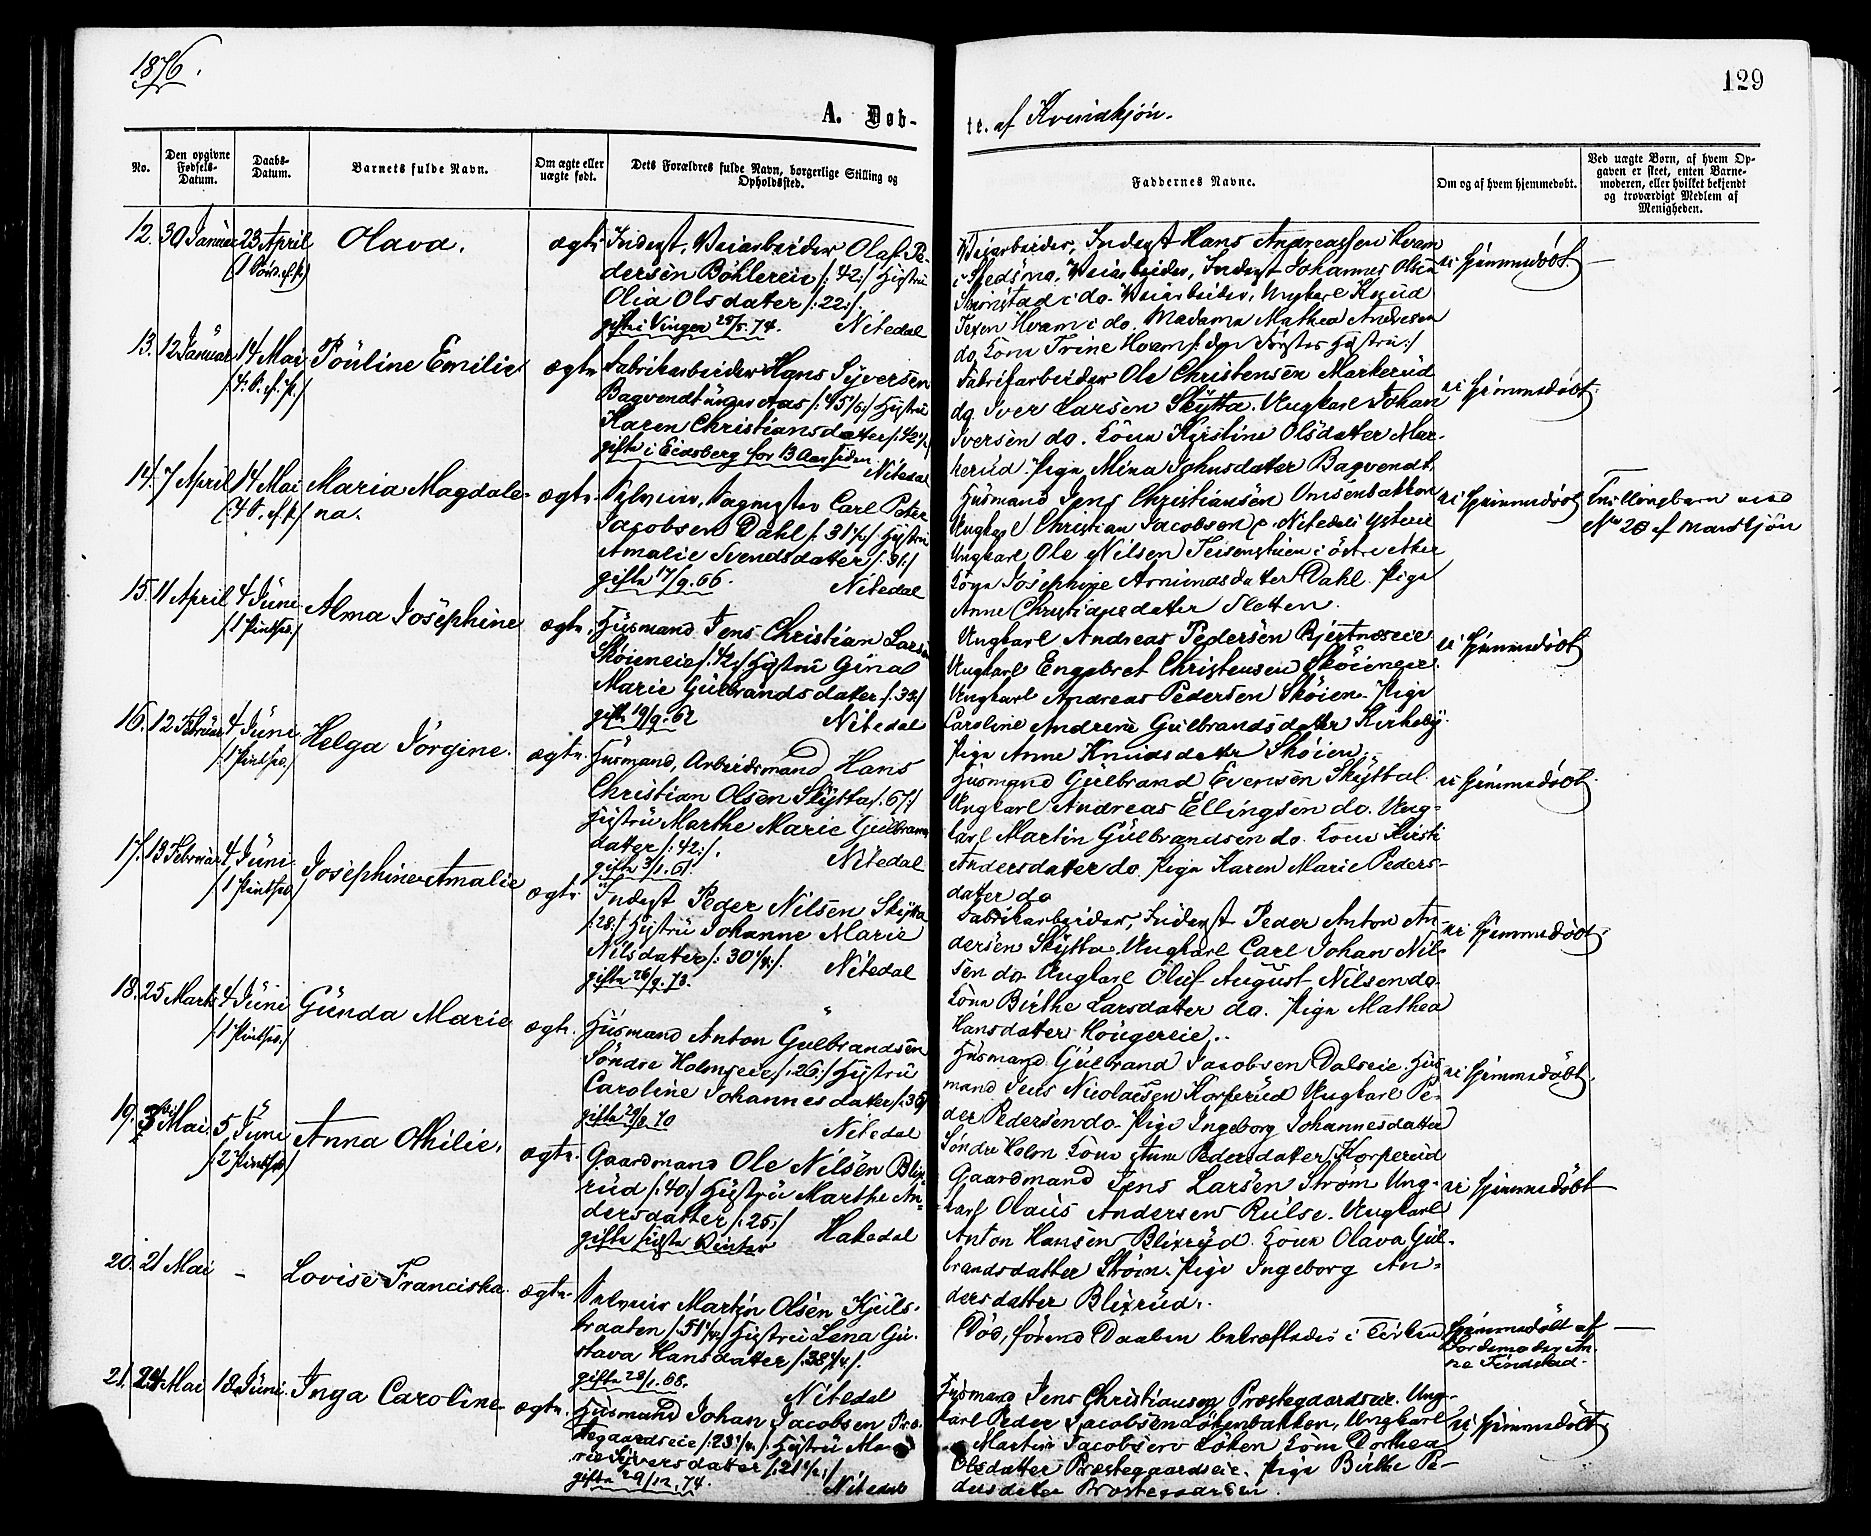 1876.
129
A. Døb-
te. af Kvindkjön.
No.
Den opgivne Fødsels-Datum.
Daabs-Datum.
Barnets fulde Navn.
Om ægte eller uægte født.
Dets Forældres fulde Navn, borgerlige Stilling og Opholdssted.
Faddernes Navne.
Om og af hvem hjemmedøbt.
Ved uægte Børn, af hvem Opgaven er skeet, enten Barnemoderen, eller hvilket bekjendt og troværdigt Medlem af Menigheden.
12. 30 Januar 23 April Olava. ægte
Inderst, Veiarbeider Olaf Pe-
dersen Böhlereie /: 42 :/ Hustru
Olia Olsdater /: 22 :/
gifte i Vinger 28/5. 74. Nitedal
Veiarbeider, Inderst Hans Andreassen Hvam
i Skedsmo, Veiarbeider, Inderst Johannes Olsen
i do. Veiarbeider, Ungkarl Knud
Hvam i do. Madame Mathea Andresen
do. Kone Trine Hvam
ei hjemmedøbt. —
13. 12 Januar 14 Mai Pouline Emilie ægte
Fabrikarbeider Hans Syversen
Bagvendtunget Aas /: 45 :/ Hustru
Karen Christiansdater /: 42 :/
gifte i Eidsberg for 13 Aar siden
Nitedal
Fabrikarbeider Ole Christensen Markerud
do. Iver Larsen Skytta. Ungkarl Johan
Iversen do. Kone Kirstine Olsdater Mar-
kerud. Pige Mina Johnsdatter Bagvendt.
ei hjemmedøbt.
14. 7 April 14 Mai Maria Magdale-
na. ægte
Carl Peter
Jacobsen Dahl /: 31 :/ Hustru
Amalie Svendsdatter /: 31 :/
gifte 17/9. 66. Nitedal
Husmand Jens Christiansen Onsenbakken
Ungkarl Christian Jacobsen
Ungkarl Ole Nilsen Teisenstuen i østre Aker
Kone Josephine Amundsdater Dahl. Pige
Anne Christiansdatter Sletten.
ei hjemmedøbt
Tvillingbarn med
No 20 af Mandkjön
15. 11 April 4 Juni /1 Pintsed./ Alma Josephine ægte.
Husmand Jens Christian Larsen
Skøieneie /: 42 :/ Hustru Gina
Marie Gulbrandsdater /: 32 :/
gifte 19/9. 62 Nitedal
Ungkarl Andreas Pedersen
Ungkarl Engebret Christensen Skøieneie.
Ungkarl Andreas Pedersen Skøien. Pige
Caroline Andrine Gulbrandsdatter Kirkeby.
Pige Anne Knudsdatter Skøien.
ei hjemmedøbt
16. 12 Februar 4 Juni /1 Pintsed./ Helga Jörgine. ægte.
Husmand, Arbeidsmand Hans
Christian Olsen Skytta /: 67 :/
Hustru Marthe Marie Gulbrands-
dater /: 42 :/.
Nitedal
Husmand Gulbrand Evensen Skytta.
Ungkarl Andreas Ellingsen do. Ung-
karl Martin Gulbrandsen do. Kone Kirsti
Andersdatter do. Pige Karen Marie Peders-
datter do
ei hjemmedøbt.
17. 13 Februar 4 Juni /1 Pintsed./ Josephine Amalie ægte
Inderst Peder Nilsen Skytta
/: 28 :/ Hustru Johanne Marie
Nilsdater /: 30 :/.
gifte 26/9. 73. Nitedal
Fabrikarbeider, Inderst Peder Anton An-
dersen Skytta. Ungkarl Carl Johan Nil-
sen do. Ungkarl Oluf August Nilsen do.
Kone Birthe Larsdatter do. Pige Mathea
Hansdatter Hougereie.
ei hjemmedøbt.
18. 25 Marts 4 Juni /1 Pintsed./ Gunda Marie ægte.
Husmand Anton Gulbrandsen
Söndre Holmseie /: 26 :/ Hustru
Caroline Johannesdater /: 36 :/
Nitedal
Husmand Gulbrand Jacobsen Dalseie. Hus-
mand Jens Nicolaisen Korperud Ungkarl Pe-
der Pedersen do. Pige Ingeborg Johannesdatter
Söndre Holm Kone Anne Pedersdatter Korperud
ei hjemmedøbt.
19. Mai 5 Juni /2 Pintsed./ Anna Othilie. ægte.
Gaardmand Ole Nilsen Blix-
rud /: 40 :/ Hustru Marthe An-
dersdatter /: 25 :/
gifte sidste Vinter Hakedal
Gaardmand Jens Larsen Strøm Ung-
karl Olaus Andersen Rulse. Ungkarl
Anton Hansen Blixrud. Kone Olava Gul-
brandsdatter Strøm. Pige Ingeborg An-
dersdatter Blixrud.
ei hjemmedøbt
20. 21 Mai - Lovise Franciska. ægte.
Martin Olsen Kjuls-
braaten /: 51 :/ Hustru Lena Gu-
stava Hansdatter /: 38 :/.
gifte 28/1. 68. Nitedal
Död, förend Daaben bekræftedes i Kirken
Hjemmedøbt af
Jordemoder An-
ne Findstad. —
21. 24 Mai 18 Juni. Inga Caroline. ægte.
Husmand Johan Jacobsen Præ-
stegaardseie /: 23 :/. Hustru Ma-
rie Syversdatter /: 21 :/
gifte 29/12. 74. Nitedal
Husmand Jens Christiansen Præstegaardseie. Ung-
karl Peder Jacobsen Løkenbakken, Ungkarl
Martin Jacobsen Løken Kone Dorthea
Olsdatter Præstegaardseie. Pige Birthe Pe-
dersdatter Præstegaarden.
ei hjemmedøbt.